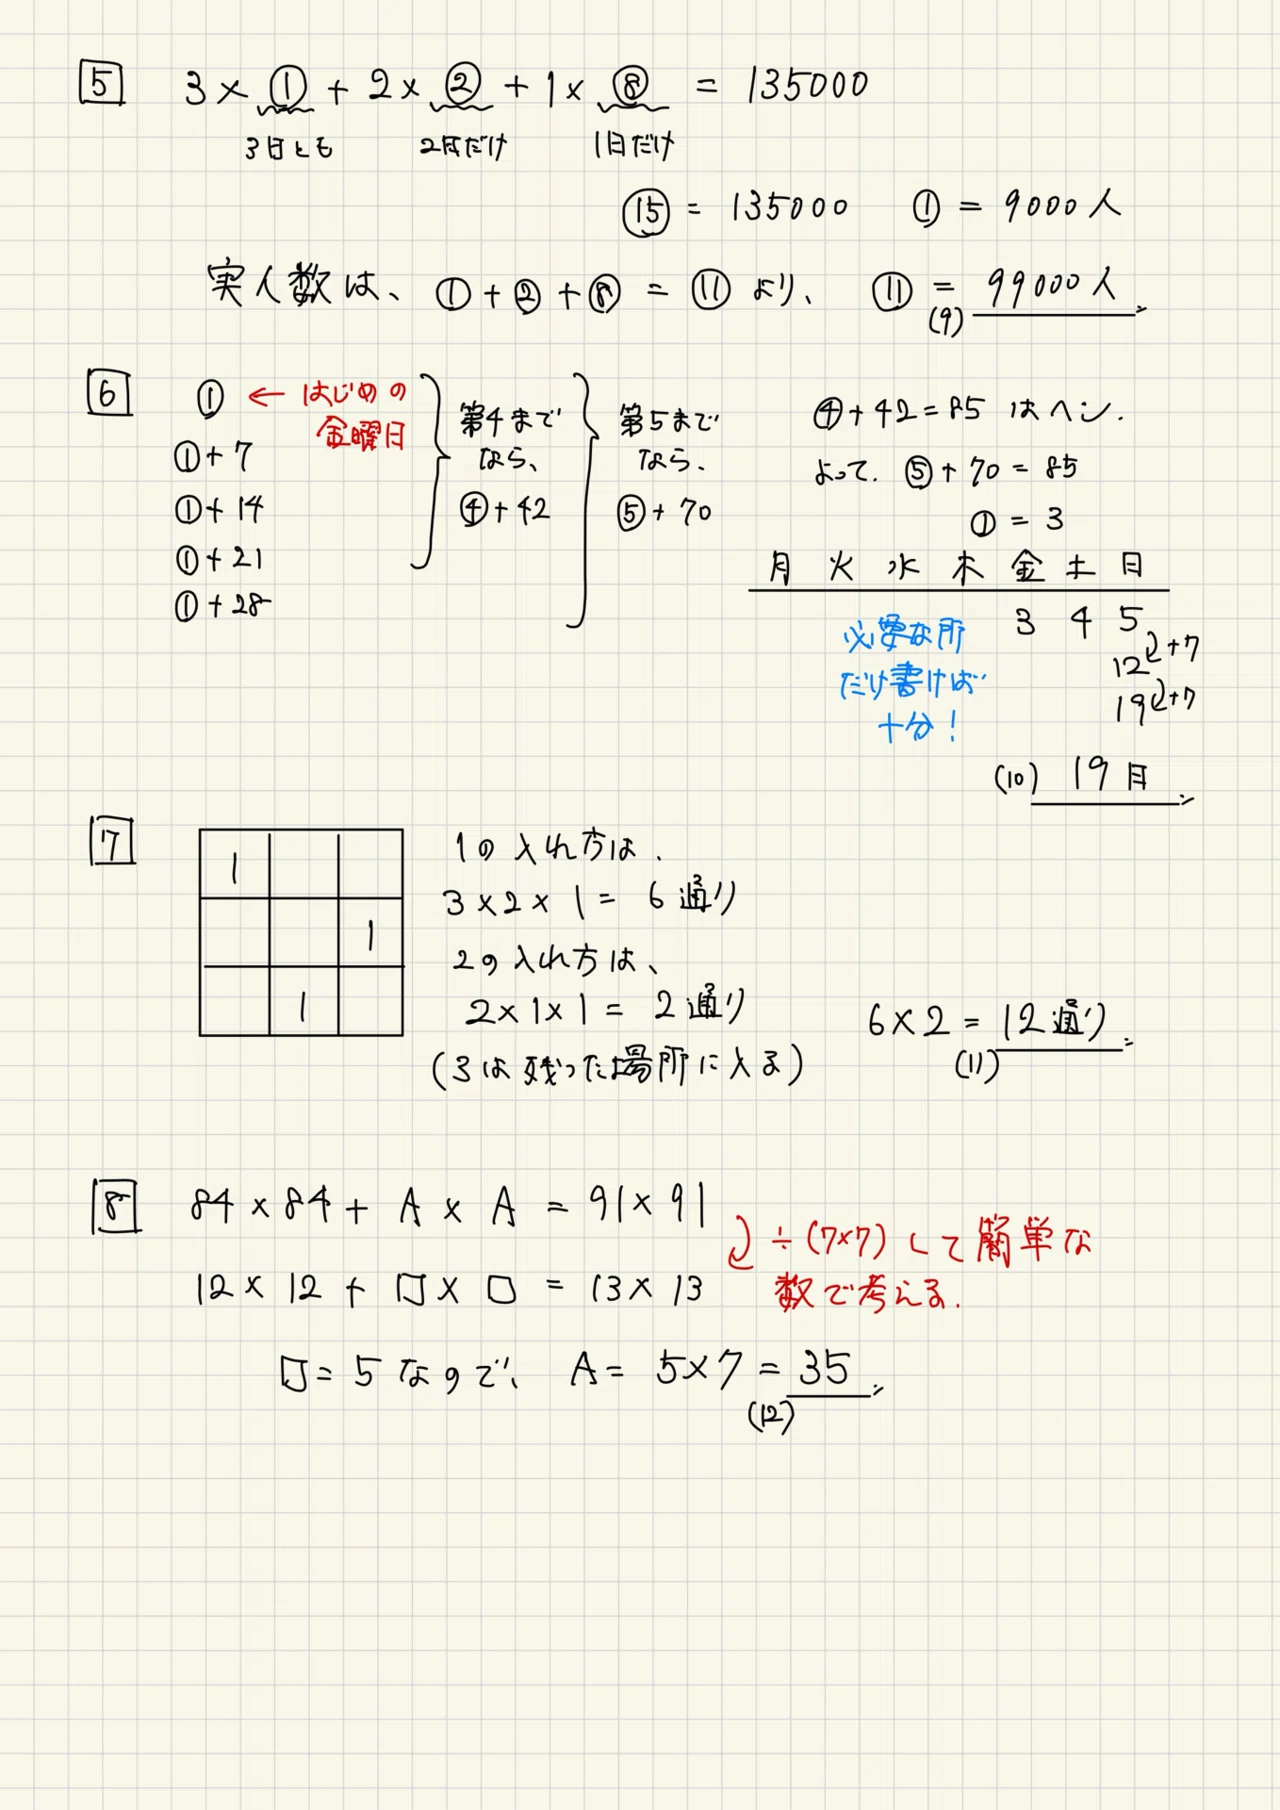 5 3×①+2×②+1×⑧ = 135000
3日とも 2日だけ 1日だけ
⑮ = 135000 ① = 9000人
実人数は、 ①+②+⑧ = ⑪ より、 ⑪ = 99000人
(9)
6 ① ← はじめの
金曜日
①+7
①+14
①+21
①+28
第4まで
なら、
④+42
第5まで
なら、
⑤+70
④+42=85 はヘン.
よって. ⑤+70=85
① = 3
月 火 水 木 金 土 日
3 4 5
12 +7
19 +7
必要な所
だけ書けば
十分!
(10) 19日
7
1
1
1
1の入れ方は、
3×2×1= 6通り
2の入れ方は、
2×1×1= 2通り
(3は残った場所に入る)
6×2=12通り
(11)
8 84×84+A×A=91×91
÷(7×7)して簡単な
数で考える.
12×12+□×□=13×13
□=5なので、 A= 5×7=35
(12)